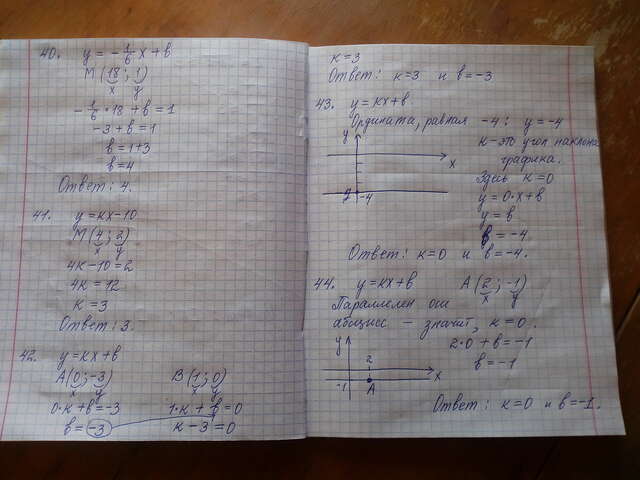 40. y = -1/6 x + в
M (18; 1)
x y
-1/6 · 18 + в = 1
-3 + в = 1
в = 1+3
в = 4
Ответ: 4.
41. y = кx - 10
M (4; 2)
x y
4к - 10 = 2
4к = 12
к = 3
Ответ: 3.
42. y = кx + в
A (0; -3) B (1; 0)
x y x y
0·к + в = -3 1·к + в = 0
в = -3 к - 3 = 0
к = 3
Ответ: к = 3 и в = -3
43. y = кx + в
Ордината, равная -4: y = -4
y
x
-4
к - это угол наклона
графика.
Здесь к = 0
y = 0·x + в
y = в
в = -4
Ответ: к = 0 и в = -4.
44. y = кx + в A (2; -1)
x y
Параллелен оси
абсцисс - значит, к = 0.
2·0 + в = -1
в = -1
y
2
x
-1
A
Ответ: к = 0 и в = -1.